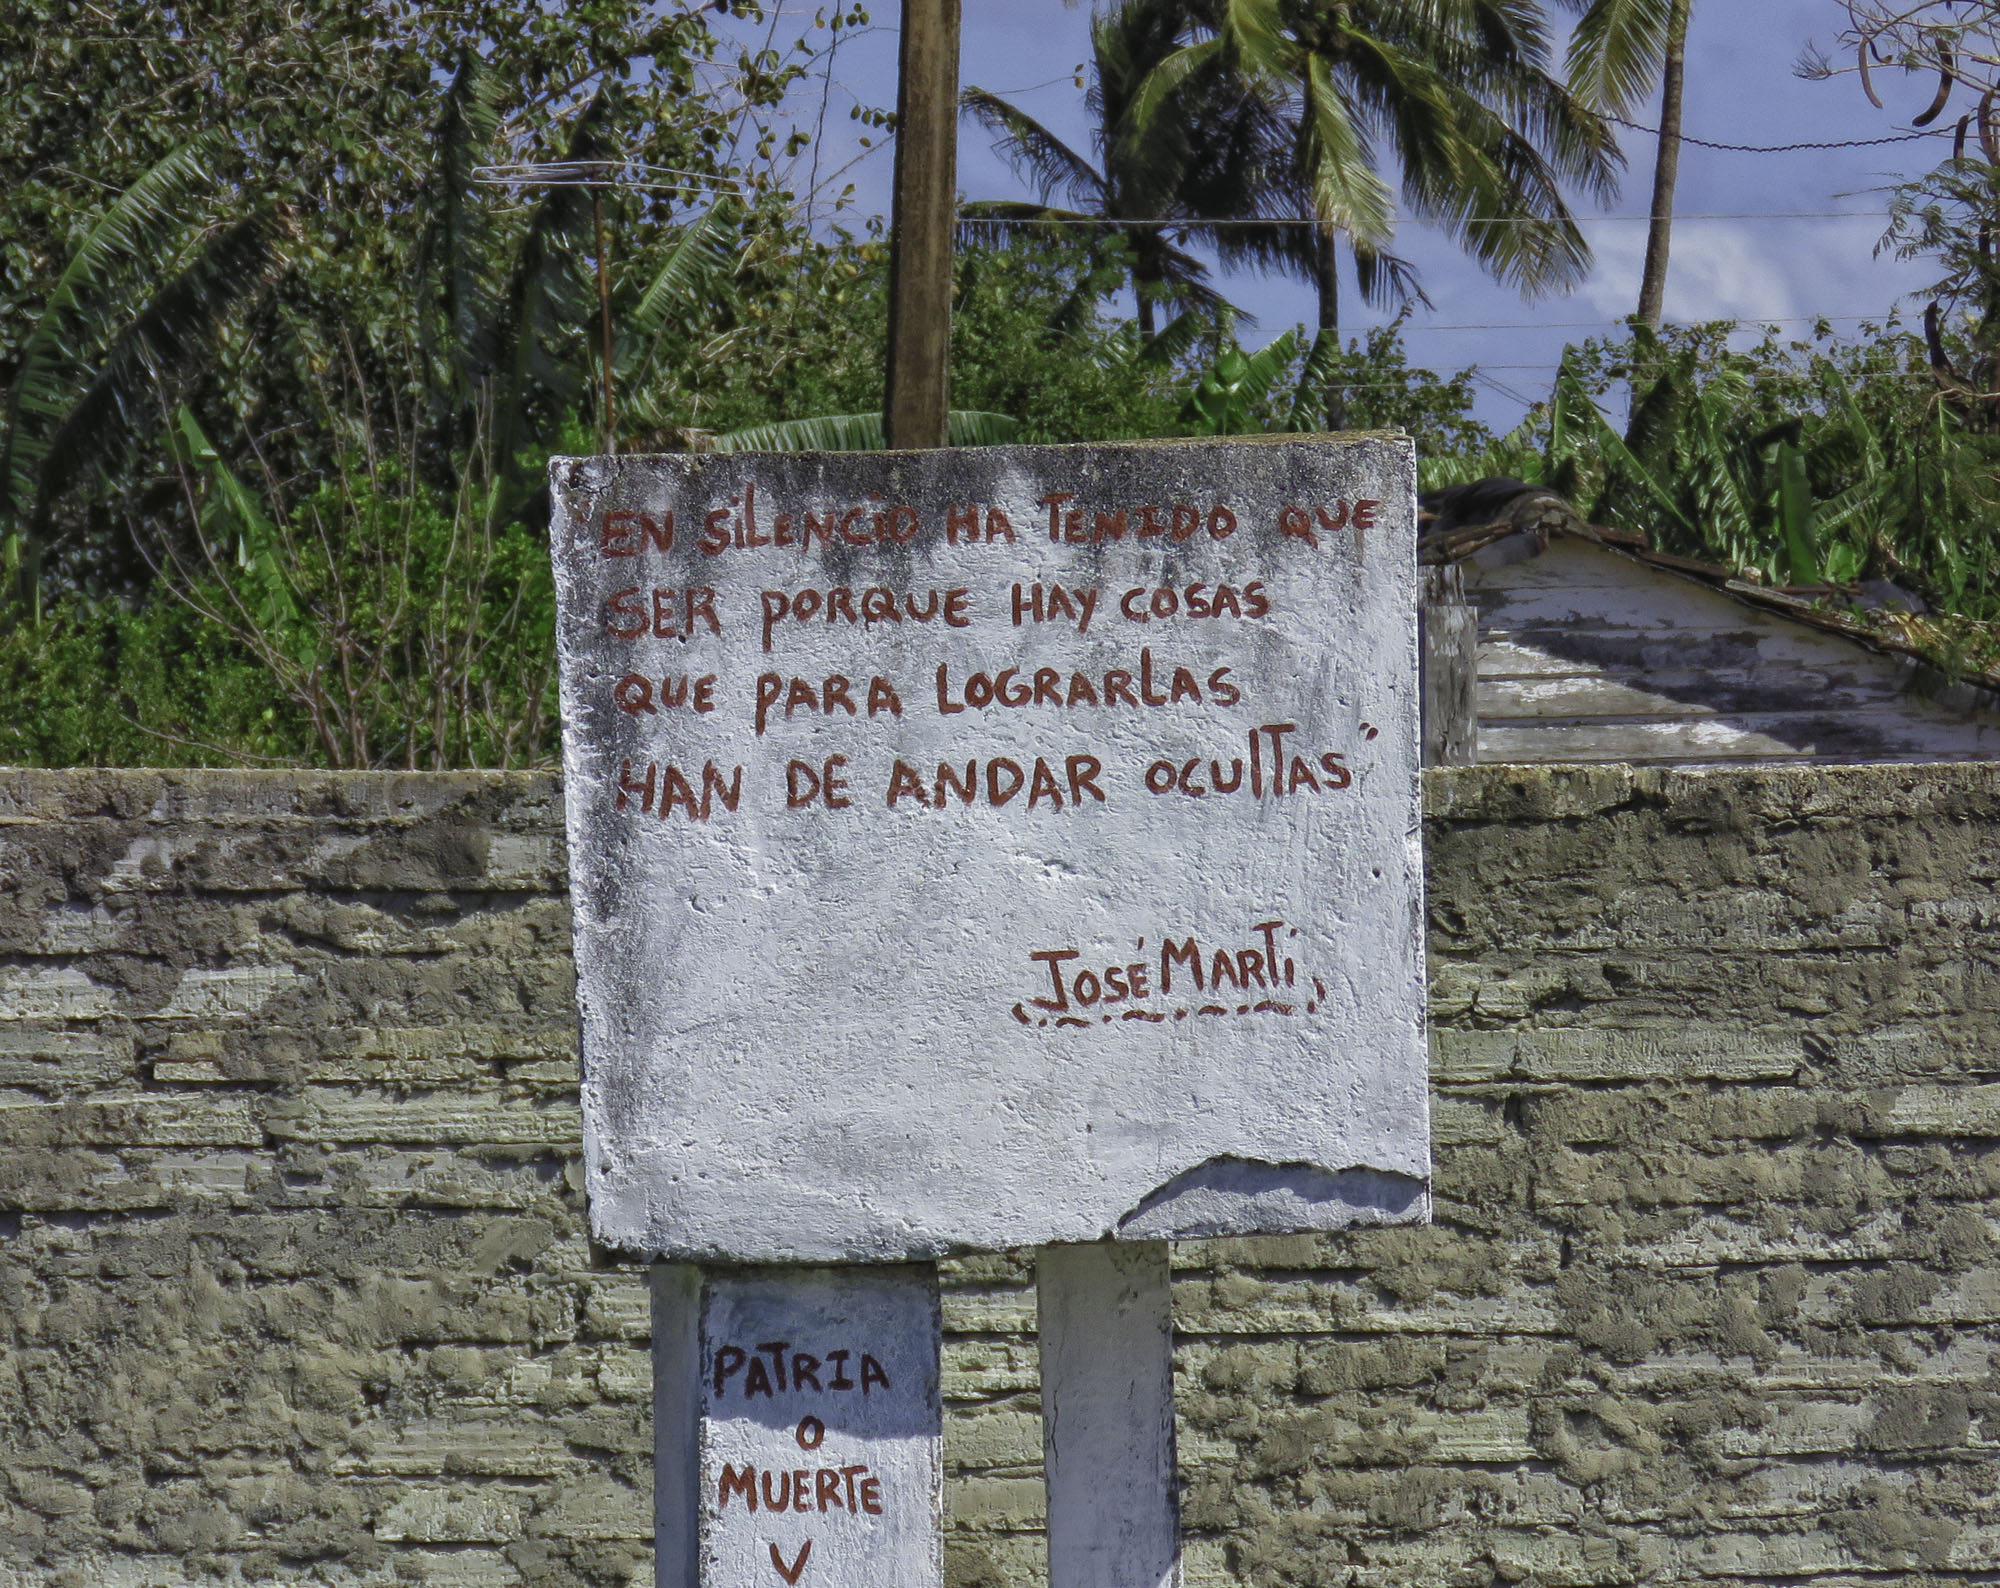 "EN SILENCIO HA TENIDO QUE
SER PORQUE HAY COSAS
QUE PARA LOGRARLAS
HAN DE ANDAR OCULTAS"
JOSÉ MARTÍ
PATRIA
O
MUERTE
V